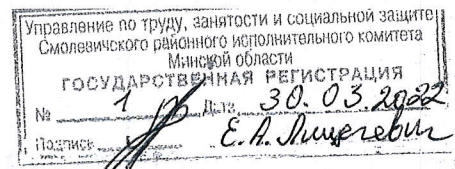 Управление по труду, занятости и социальной защите
Смолевичского районного исполнительного комитета
Минской области
ГОСУДАРСТВЕННАЯ РЕГИСТРАЦИЯ
№ 1 Дата 30.03.2022
Подпись Е.А.